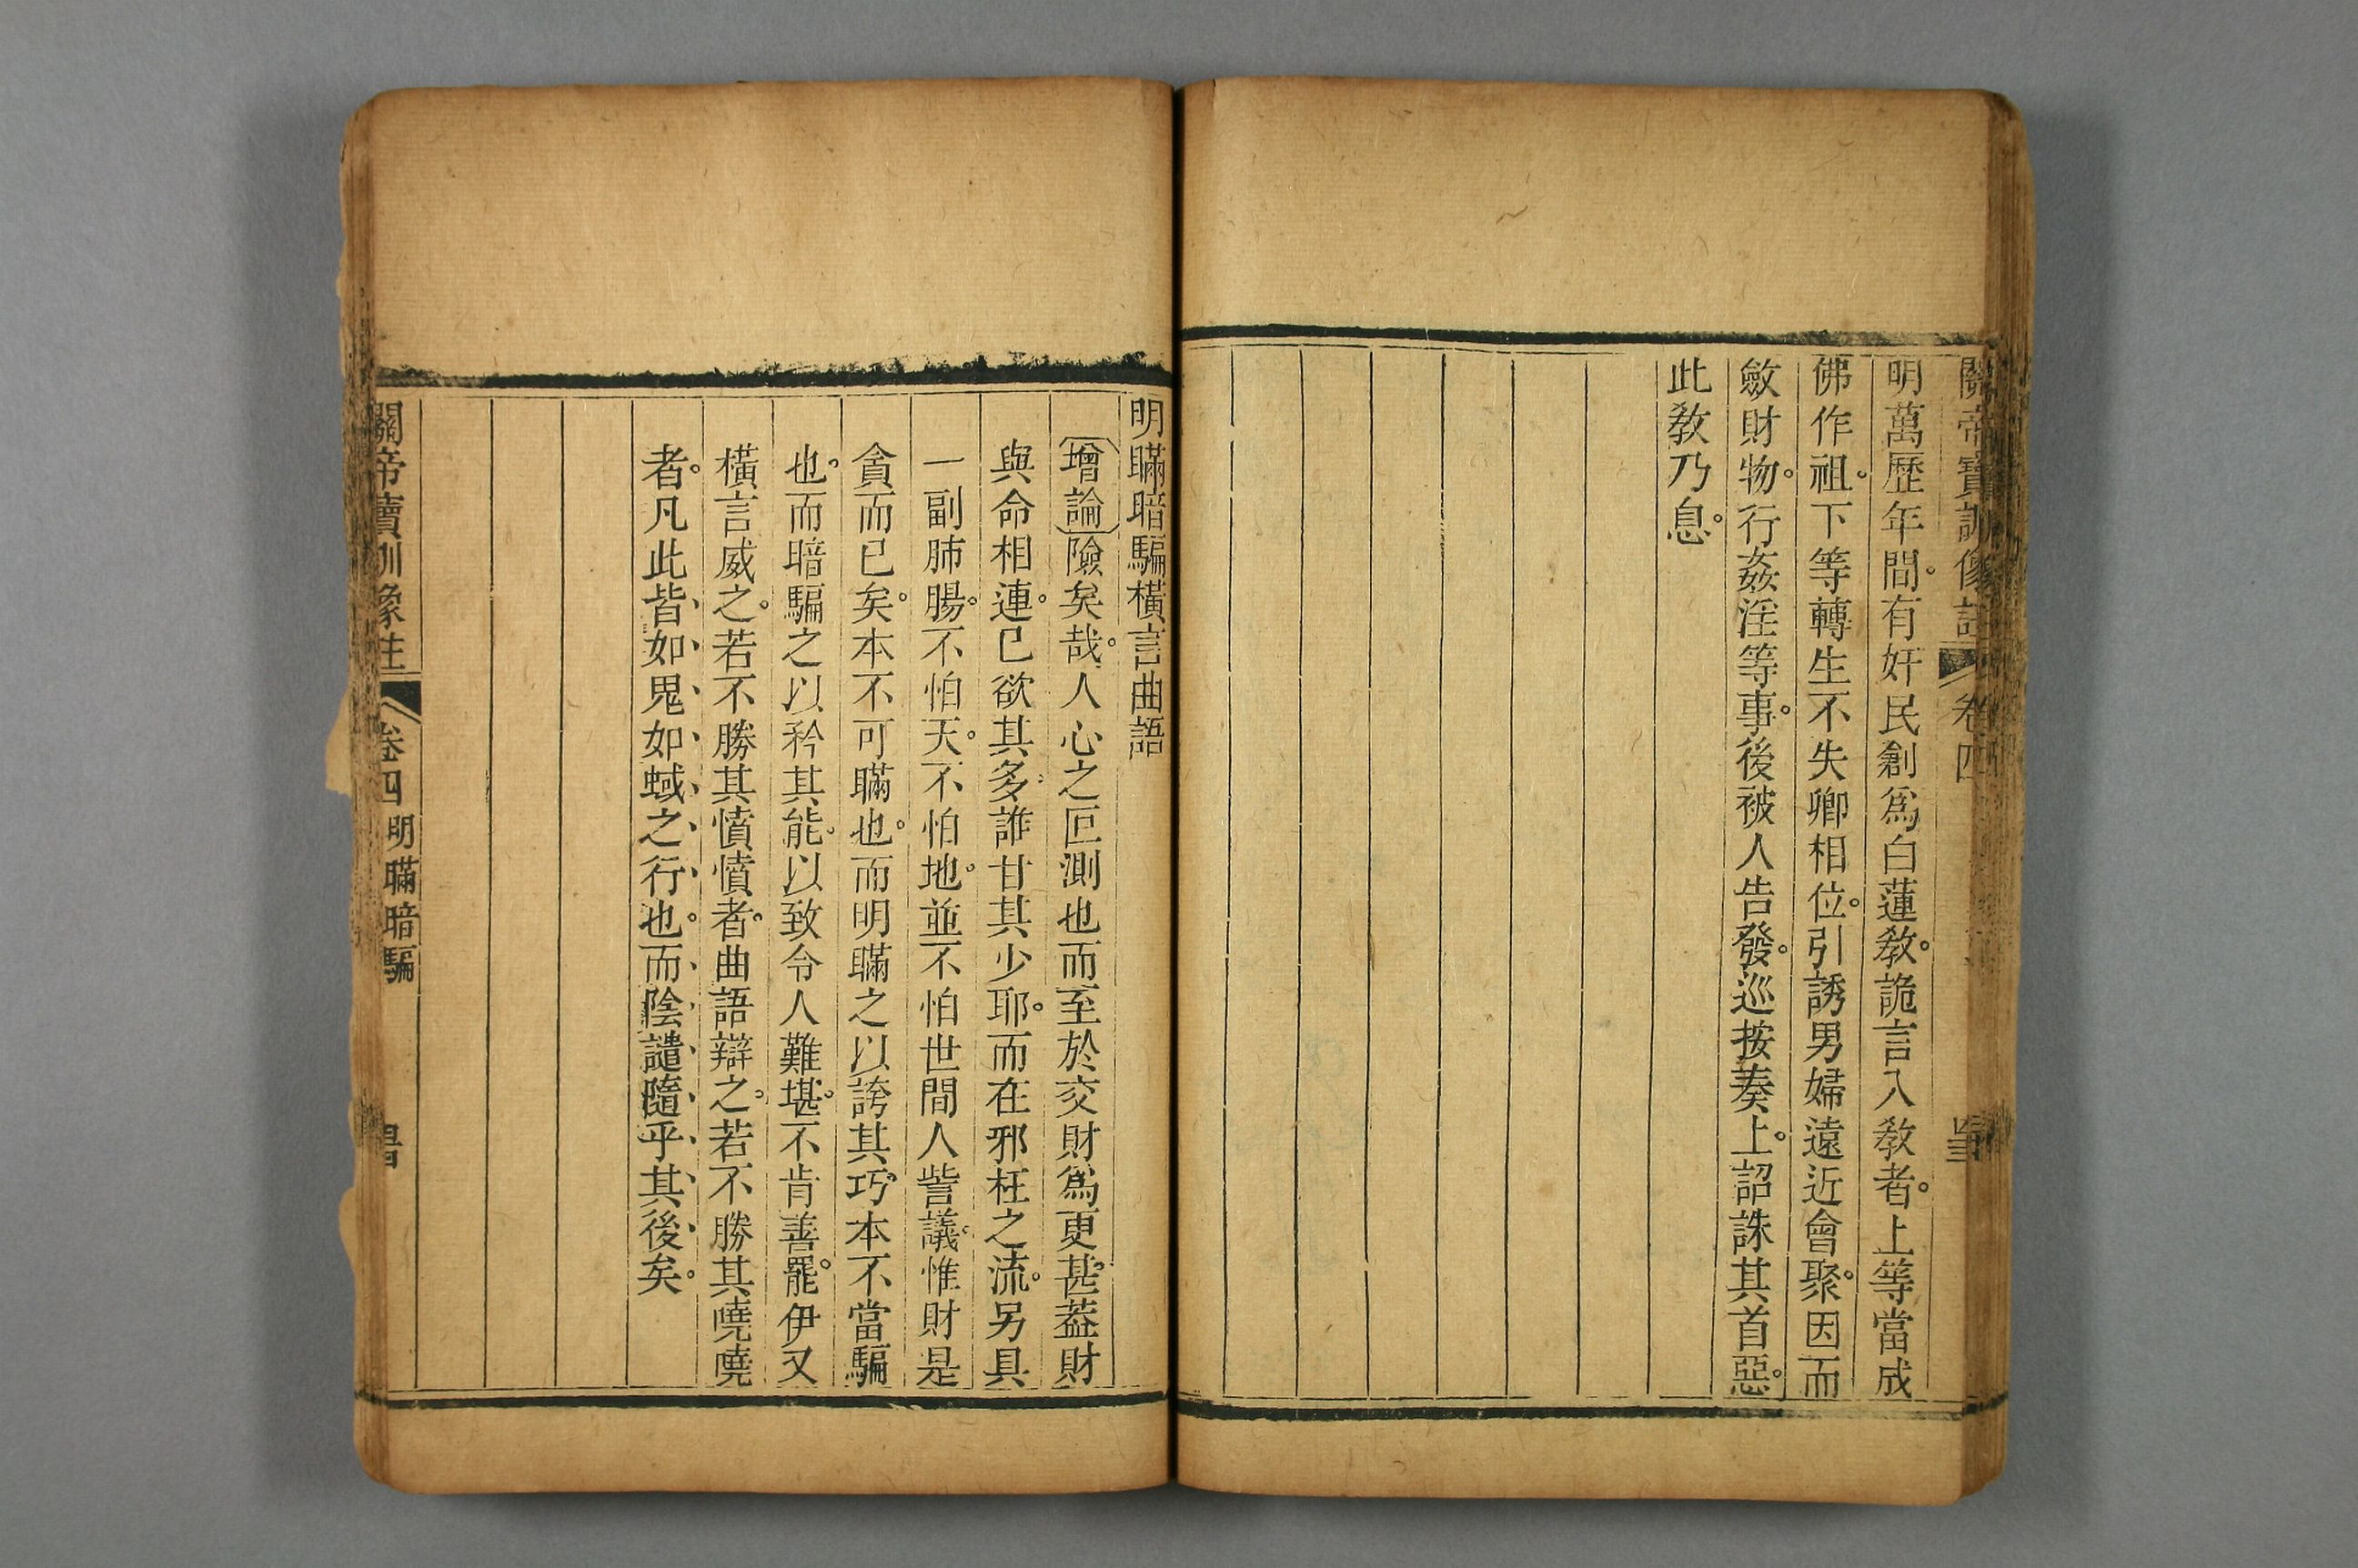 關帝寶訓像註 卷四
明萬歷年間。有奸民創爲白蓮教。詭言入教者。上等當成
佛作祖。下等轉生不失卿相位。引誘男婦遠近會聚。因而
斂財物。行姦淫等事。後被人告發。巡按奏上。詔誅其首惡。
此教乃息。
明瞞暗騙橫言曲語
增論險矣哉。人心之叵測也而至於交財爲更甚。葢財
與命相連。已欲其多。誰甘其少耶。而在邪枉之流。另具
一副肺腸。不怕天。不怕地。並不怕世間人訾議。惟財是
貪而已矣。本不可瞞也。而明瞞之以誇其巧。本不當騙
也。而暗騙之以矜其能。以致令人難堪。不肯善罷。伊又
橫言威之。若不勝其憤憤者。曲語辯之。若不勝其嘵嘵
者。凡此皆、如、鬼、如、蜮、之、行、也。而、陰、譴、隨、乎、其、後、矣。
關帝寶訓像註 卷四 明瞞暗騙